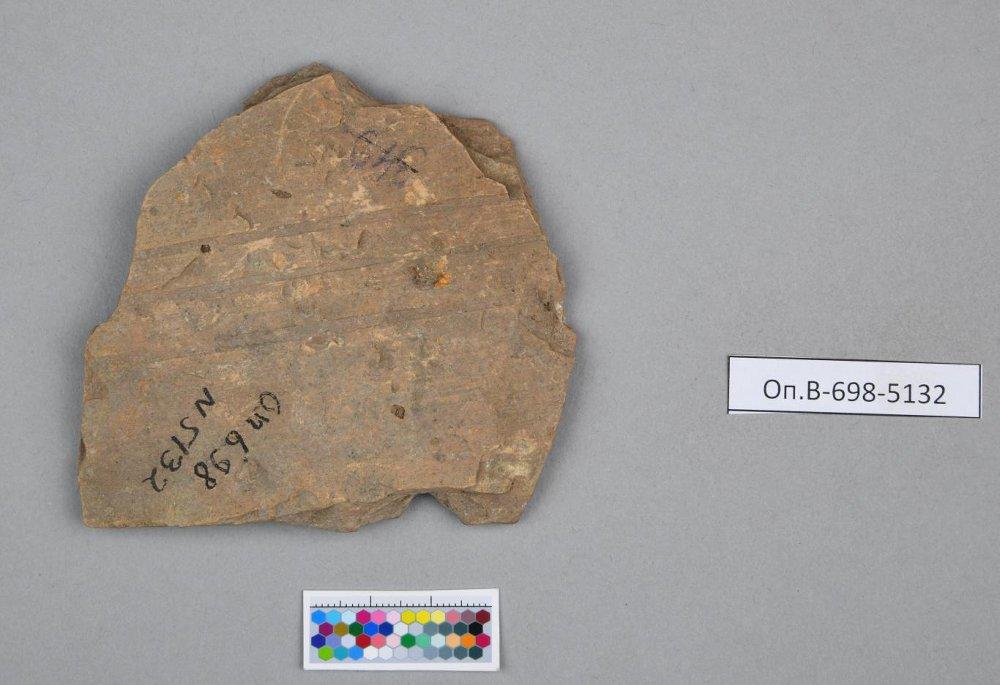 Оп 698
N 5132
Оп.В-698-5132